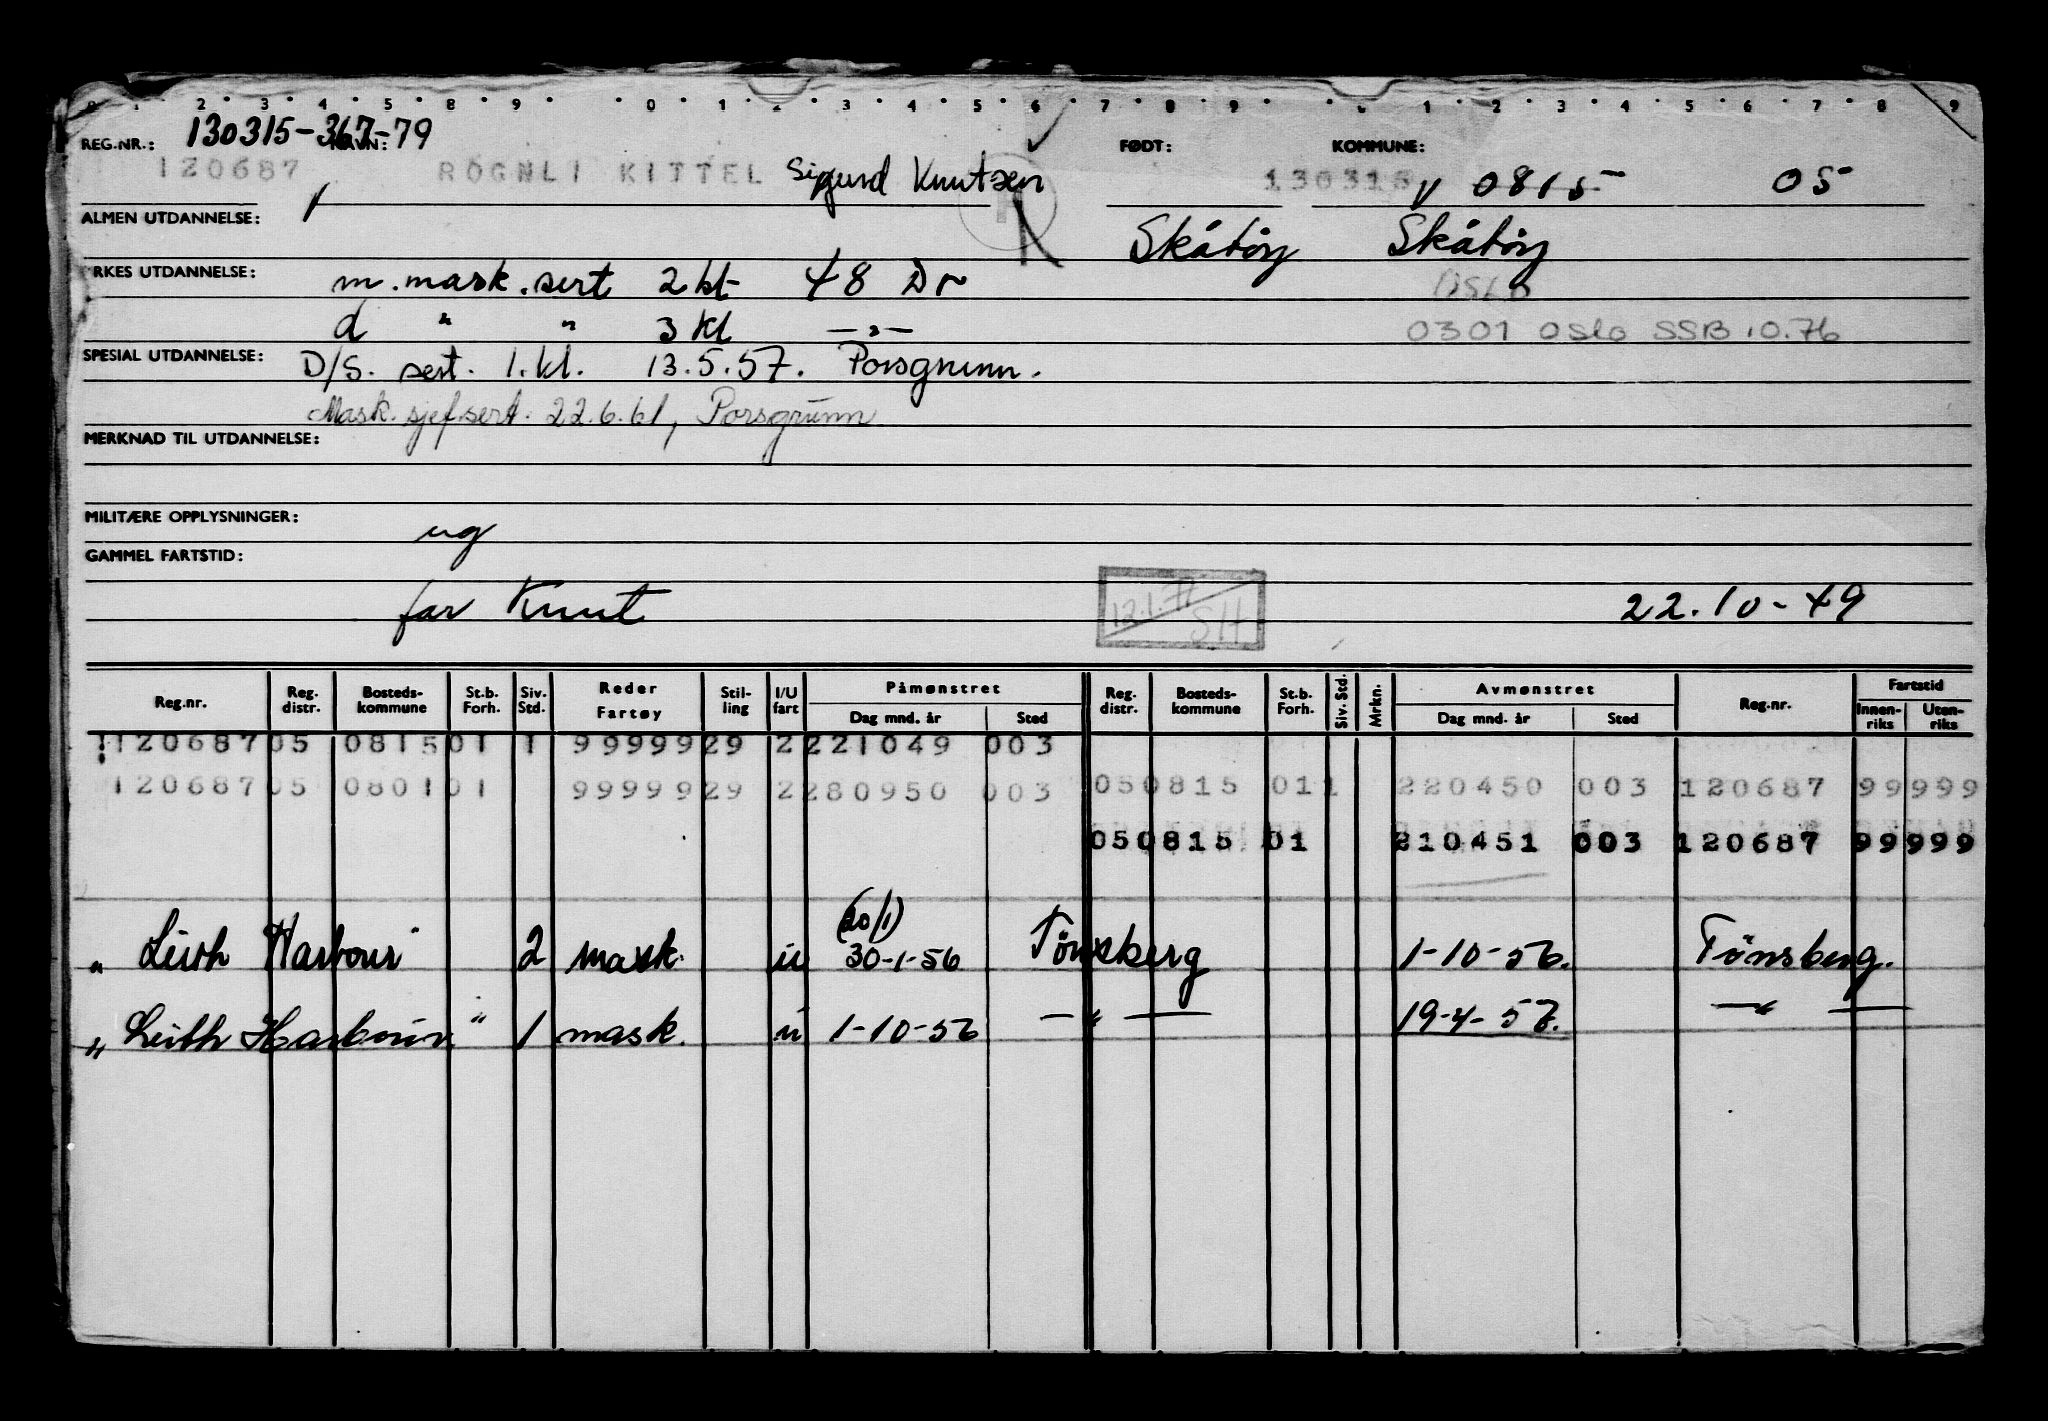 2 3 4 5 8 9 0 1 2 3 4 5 6 7 8 9 1 2 3 4 5 6 7 8 9
REG.NR.: 130315-367-79 NAVN: FØDT: KOMMUNE:
120687 ROGNLI KITTEL Sigurd Knutsen 130315 v 0815 05
ALMEN UTDANNELSE: Skåtøy Skåtøy
RKES UTDANNELSE: m. mask. sert 2 kl 48 Dr OSLO
d " " 3 kl —"— 0301 Oslo SSB 10.76
SPESIAL UTDANNELSE: D/S. sert. 1. kl. 13.5.57. Porsgrunn.
Mask. sjefsert. 22.6.61, Porsgrunn
MERKNAD TIL UTDANNELSE:
MILITÆRE OPPLYSNINGER: ug
GAMMEL FARTSTID:
far Knut 12.1.77 SH 22.10-49
Reg.nr. Reg. distr. Bosteds- kommune St.b. Forh. Siv. Std. Reder Fartøy Stil- ling I/U fart Påmønstret Dag mnd. år Sted Reg. distr. Bosteds- kommune St.b. Forh. Siv. Std. Mrkn. Avmønstret Dag mnd. år Sted Reg.nr. Fartstid Innen- riks Uten- riks
120687 05 0815 01 1 99999 29 2 221049 003
120687 05 0801 01 99999 29 2 280950 003 05 0815 01 1 220450 003 120687 99 999
05 0815 01 210451 003 120687 99 999
(20/1)
„ Leith Harbour" 2 mask. u 30-1-56 Tönsberg 1-10-56. Tönsberg.
„ Leith Harbour" 1 mask. u 1-10-56 —"— 19-4-57. —"—